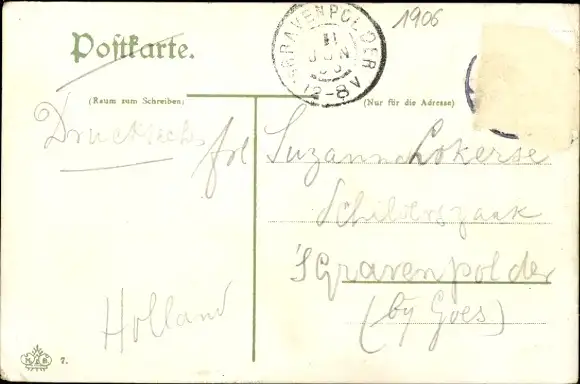 1906
Postkarte.
'SGRAVENPOLDER
11
JUN
06
12-8V
(Raum zum Schreiben)
(Nur für die Adresse)
Drucksache
frl Suzanna Lokerse
'SGravenpolder
(by Goes)
Holland
7.